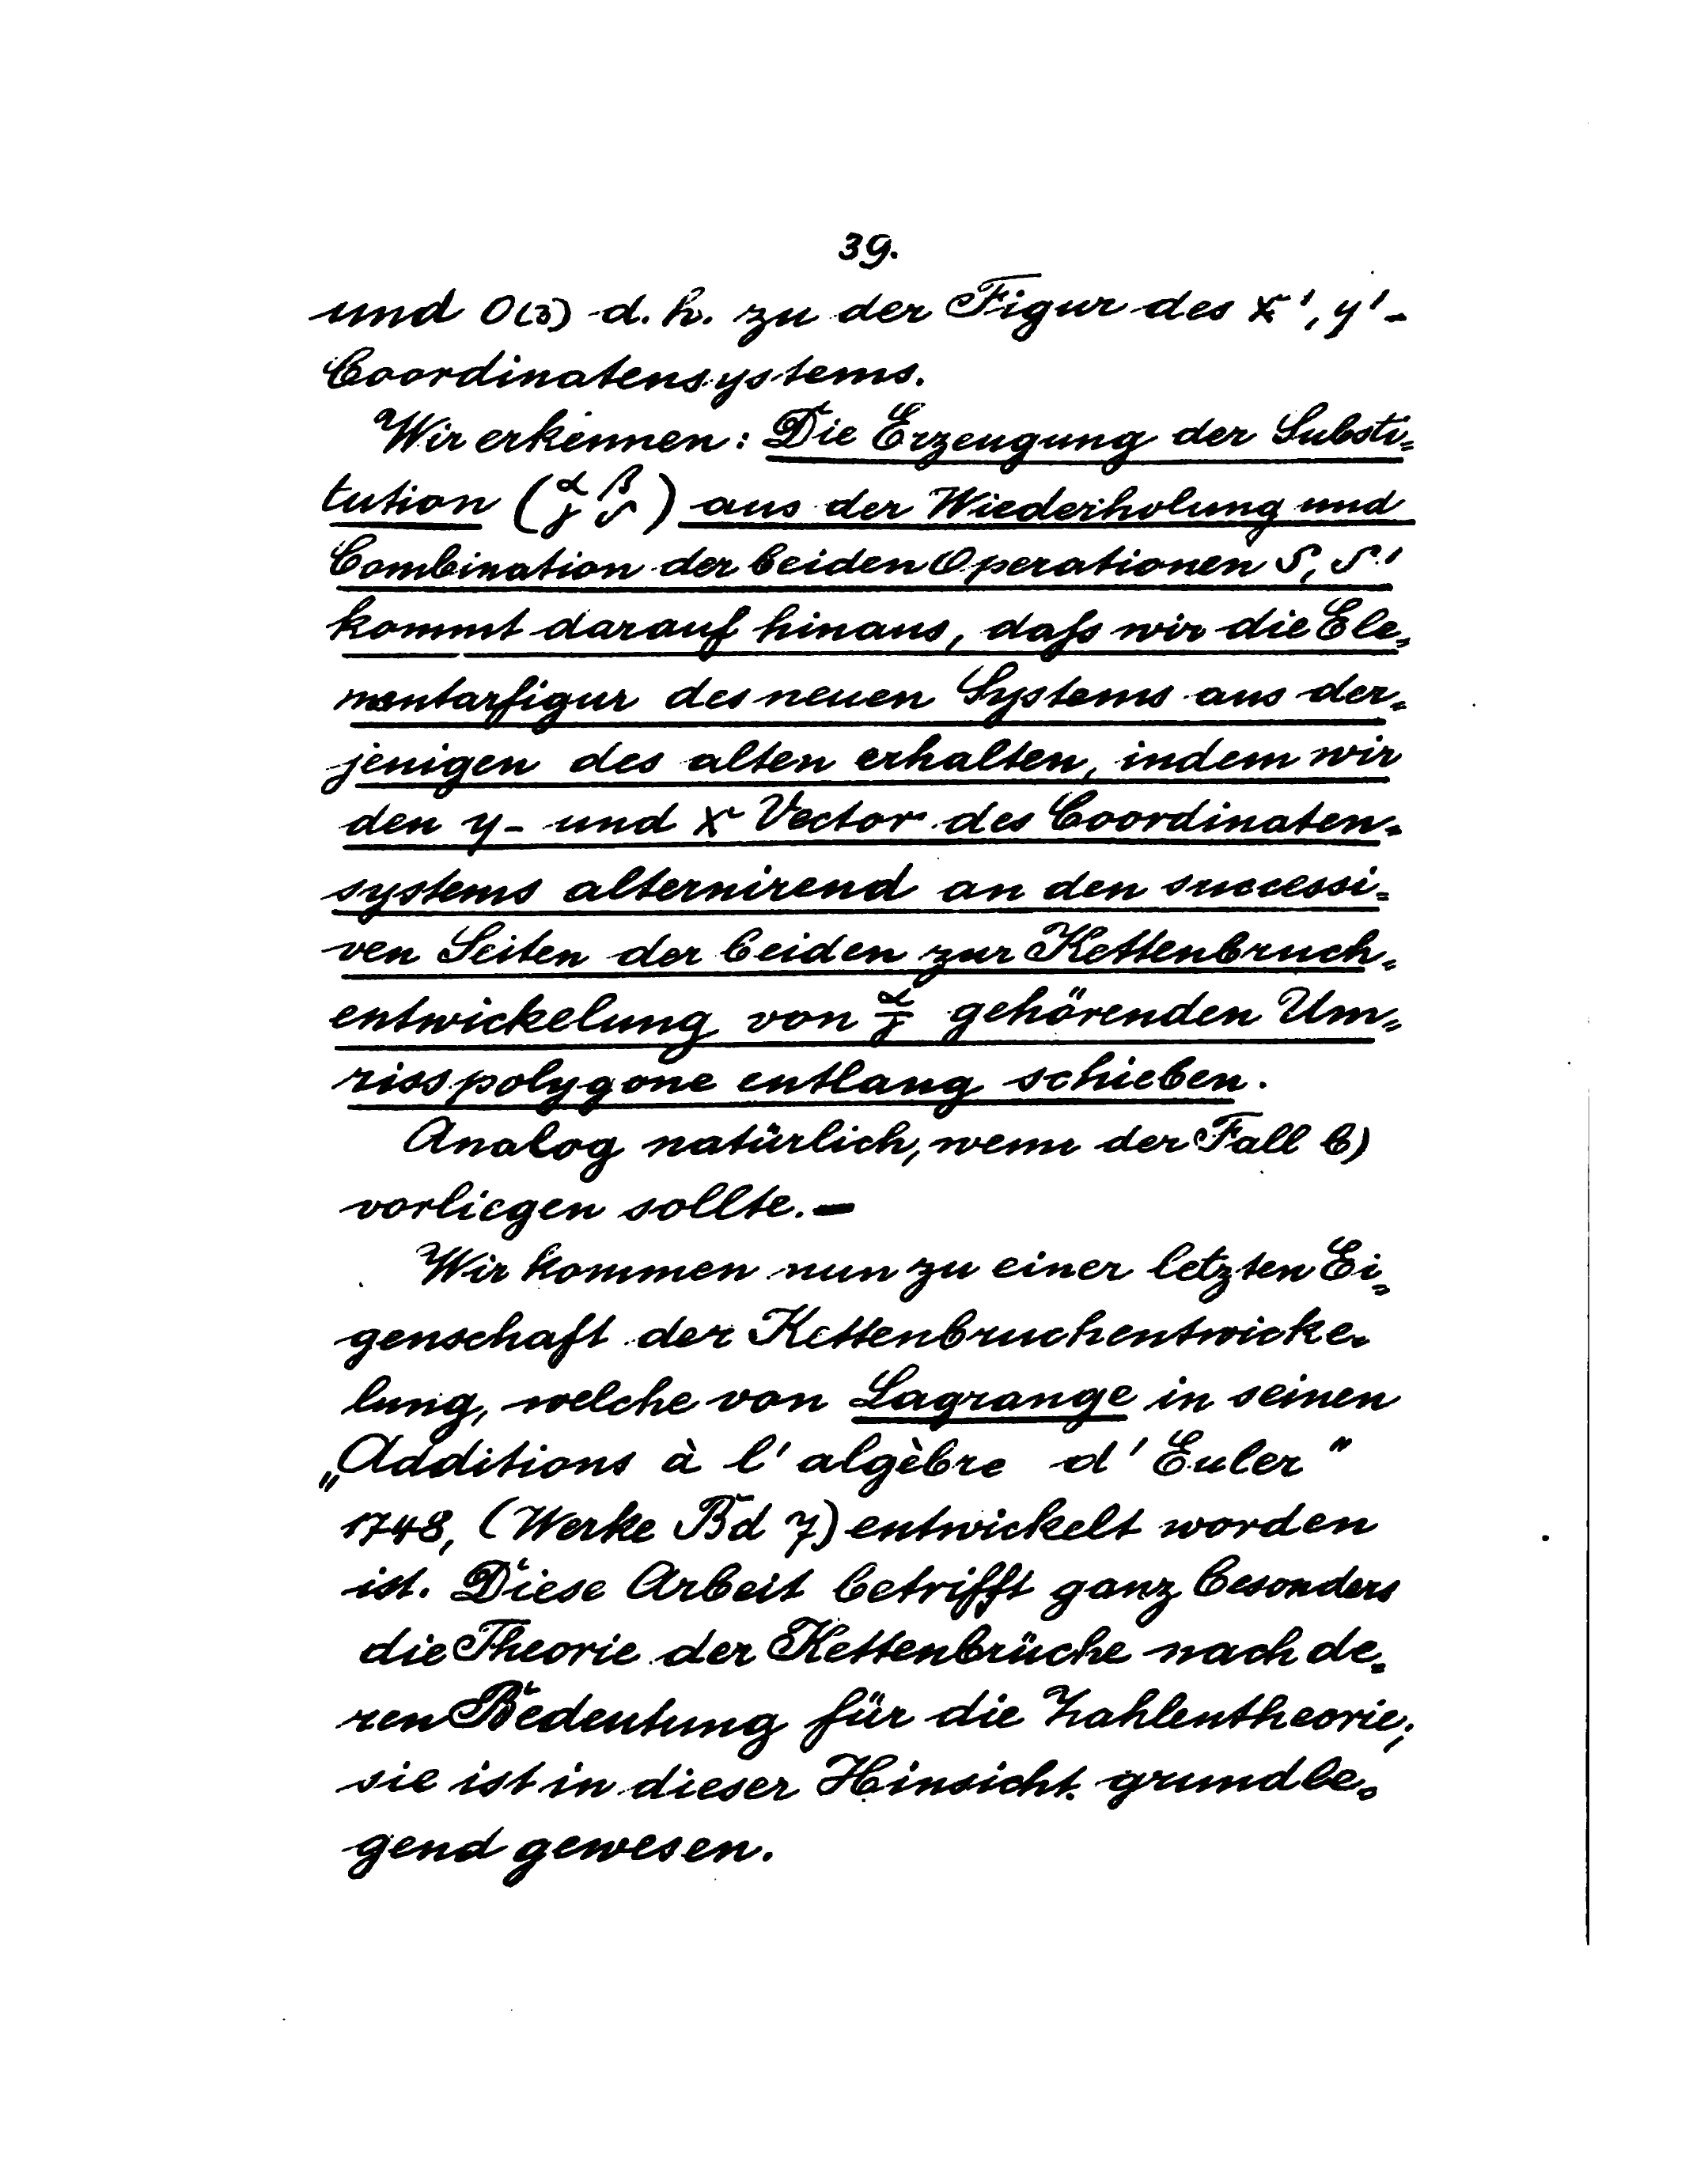 39.
und O(3) d. h. zu der Figur des x', y'-
Coordinatensystems.
Wir erkennen: Die Erzeugung der Substi-
tution (α β γ δ) aus der Wiederholung und
Combination der beiden Operationen S, S'
kommt darauf hinaus, daſs wir die Ele-
mentarfigur des neuen Systems aus der-
jenigen des alten erhalten, indem wir
den y- und x Vector des Coordinaten-
systems alternirend an den successi-
ven Seiten der beiden zur Kettenbruch-
entwickelung von α/γ gehörenden Um-
risspolygone entlang schieben.
Analog natürlich, wenn der Fall b)
vorliegen sollte. —
Wir kommen nun zu einer letzten Ei-
genschaft der Kettenbruchentwicke-
lung, welche von Lagrange in seinen
„Additions à l'algèbre d'Euler"
1748, (Werke Bd 7) entwickelt worden
ist. Diese Arbeit betrifft ganz besonders
die Theorie der Kettenbrüche nach de-
ren Bedeutung für die Zahlentheorie;
sie ist in dieser Hinsicht grundle-
gend gewesen.